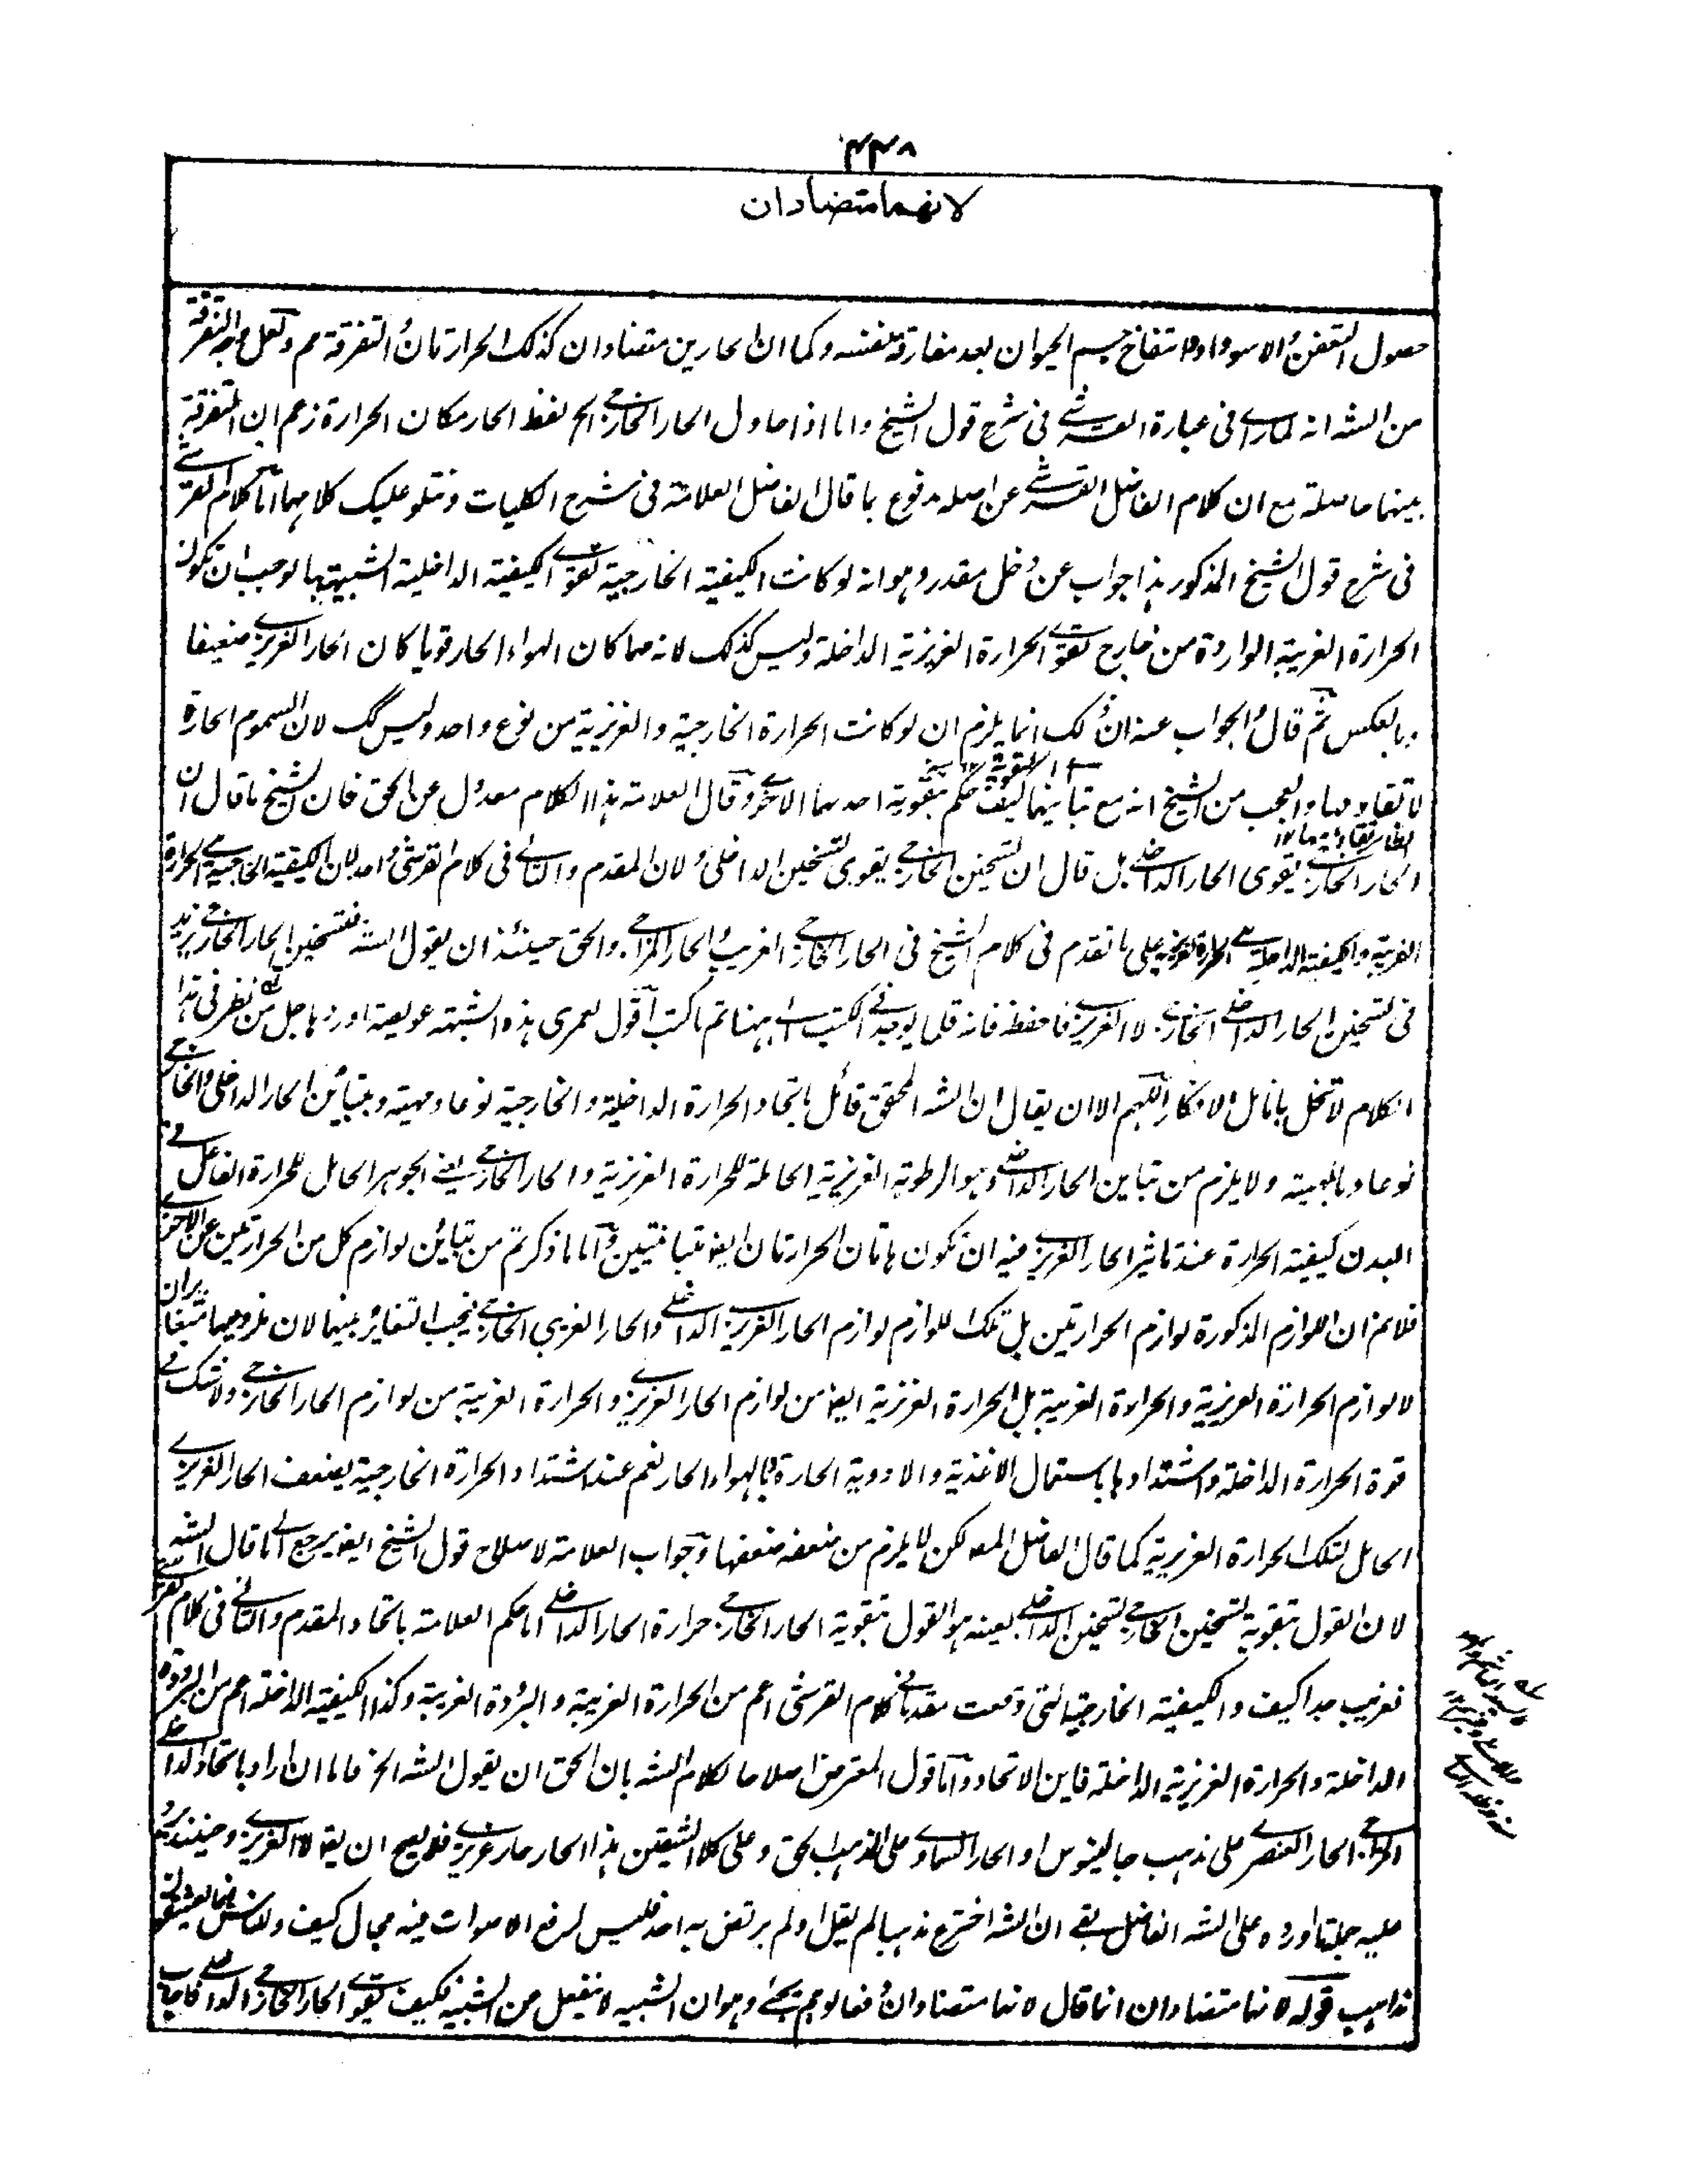 ۴۴۸
لانهما متضادان
حصول التعفن والاسوداد والانتفاخ جسم الحيوان بعد مفارقة نفسه وكما ان الحارين متضادان كذلك الحرارتان التفرقة مم ولعل وجه التفرقة
من الشه انه لما راى فى عبارة القرشى فى شرح قول الشيخ واما اذا حاول الحار الخارجى الخ لفظ الحار مكان الحرارة زعم ان التفرقة
بينهما حاصلة مع ان كلام الفاضل القرشى عن اصله مدفوع بما قال الفاضل العلامة فى شرح الكليات ونتلو عليك كلامهما اما كلام القرشى
فى شرح قول الشيخ المذكور هذا جواب عن دخل مقدر وهو انه لو كانت الكيفية الخارجية تقوى الكيفية الداخلية الشبيهة بها لوجب ان تكون
الحرارة الغريبة الواردة من خارج تقوى الحرارة الغريزية الداخلة وليس كذلك لانه مهما كان الهواء الحار قويا كان الحار الغريزى ضعيفا
وبالعكس ثم قال والجواب عنه ان ذلك انما يلزم ان لو كانت الحرارة الخارجية والغريزية من نوع واحد وليس كك لان السموم الحارة
لا تقاومها والعجب من الشيخ انه مع تباينهما كيف حكم بتقوية احدهما الاخرى وقال العلامة هذا الكلام معدول عن الحق فان الشيخ ما قال ان
الحار الخارجى يقوى الحار الداخلى بل قال ان تسخين الخارجى يقوى تسخين الداخلى ولان المقدم والتالى فى كلام القرشى واحد لان الكيفية الخارجية هى الحرارة
الغريبة والكيفية الداخلية هى الحرارة الغريزية على ما تقدم فى كلام الشيخ فى الحار الخارجى الغريب والحار المزاجى والحق حينئذ ان يقول الشه فتسخين الحار الخارجى يزيد
فى تسخين الحار الداخلى الخارجى لا الغريزى فاحفظه فانه قلما يوجد فى الكتب الى ههنا تم ما كتب اقول لعمرى هذه الشبهة عويصة اوردها جل من نظر فى هذا
الكلام لا تنحل بانامل الافكار اللهم الا ان يقال ان الشه المحقق قائل باتحاد الحرارة الداخلية والخارجية نوعا ومهية وبتباين الحار الداخلى والخارجى
نوعا وبالمهية ولا يلزم من تباين الحار الداخلى وهو الرطوبة الغريزية الحاملة للحرارة الغريزية والحار الخارجى يعنى الجوهر الحامل للحرارة الفاعل فى
البدن كيفية الحرارة عند تاثير الحار الغريزى فيه ان تكون هاتان الحرارتان ايضا متباينتين واما ما ذكرتم من تباين لوازم كل من الحرارتين عن الاخرى
فلا نم ان اللوازم المذكورة لوازم الحرارتين بل تلك اللوازم لوازم الحار الغريزى الداخلى والحار الغريب الخارجى فيجب التغاير بينهما لان ملزوميهما متغايران
لا لوازم الحرارة الغريزية والحرارة الغريبة بل الحرارة الغريزية ايضا من لوازم الحار الغريزى والحرارة الغريبة من لوازم الحار الخارجى ولا شك فى
قوة الحرارة الداخلة واشتدادها باستعمال الاغذية والادوية الحارة وبالهواء الحار نعم عند اشتداد الحرارة الخارجية يضعف الحار الغريزى
الحامل لتلك الحرارة الغريزية كما قال الفاضل المص لكن لا يلزم من ضعفه ضعفها وجواب العلامة لاصلاح قول الشيخ ايضا يرجع الى ما قال الشه
لان القول بتقوية تسخين الخارجى تسخين الداخلى بعينه هو القول بتقوية الحار الخارجى حرارة الحار الداخلى اما حكم العلامة باتحاد المقدم والتالى فى كلام القرشى
فغريب جدا كيف والكيفية الخارجية التى وقعت مقدما فى كلام القرشى اعم من الحرارة الغريبة والبرودة الغريبة وكذا الكيفية الداخلة اعم من البرودة
الداخلة والحرارة الغريزية الداخلة فاين الاتحاد واما قول المعترض اصلاحا لكلام الشه بان الحق ان يقول الشه الخ فاما ان اراد بالحار الداخلى
المزاجى الحار العنصرى على مذهب جالينوس او الحار السماوى على المذهب الحق وعلى كلا الشقين هذا الحار حار غريزى فلا يصح ان يقول لا الغريزى وحينئذ يرد
عليه جملة ما اورده على الشه الفاضل بقى ان الشه اخترع مذهبا لم يقل اولم يرتض به احد فليس لرفع الاصوات فيه مجال كيف وللناس فيما يعشقون
مذاهب قوله لانهما متضادان انما قال لانهما متضادان دفعا لوهم يجئ وهو ان الشبيه لا ينفعل من الشبيه فكيف يقوى الحار الخارجى الداخلى فاجاب